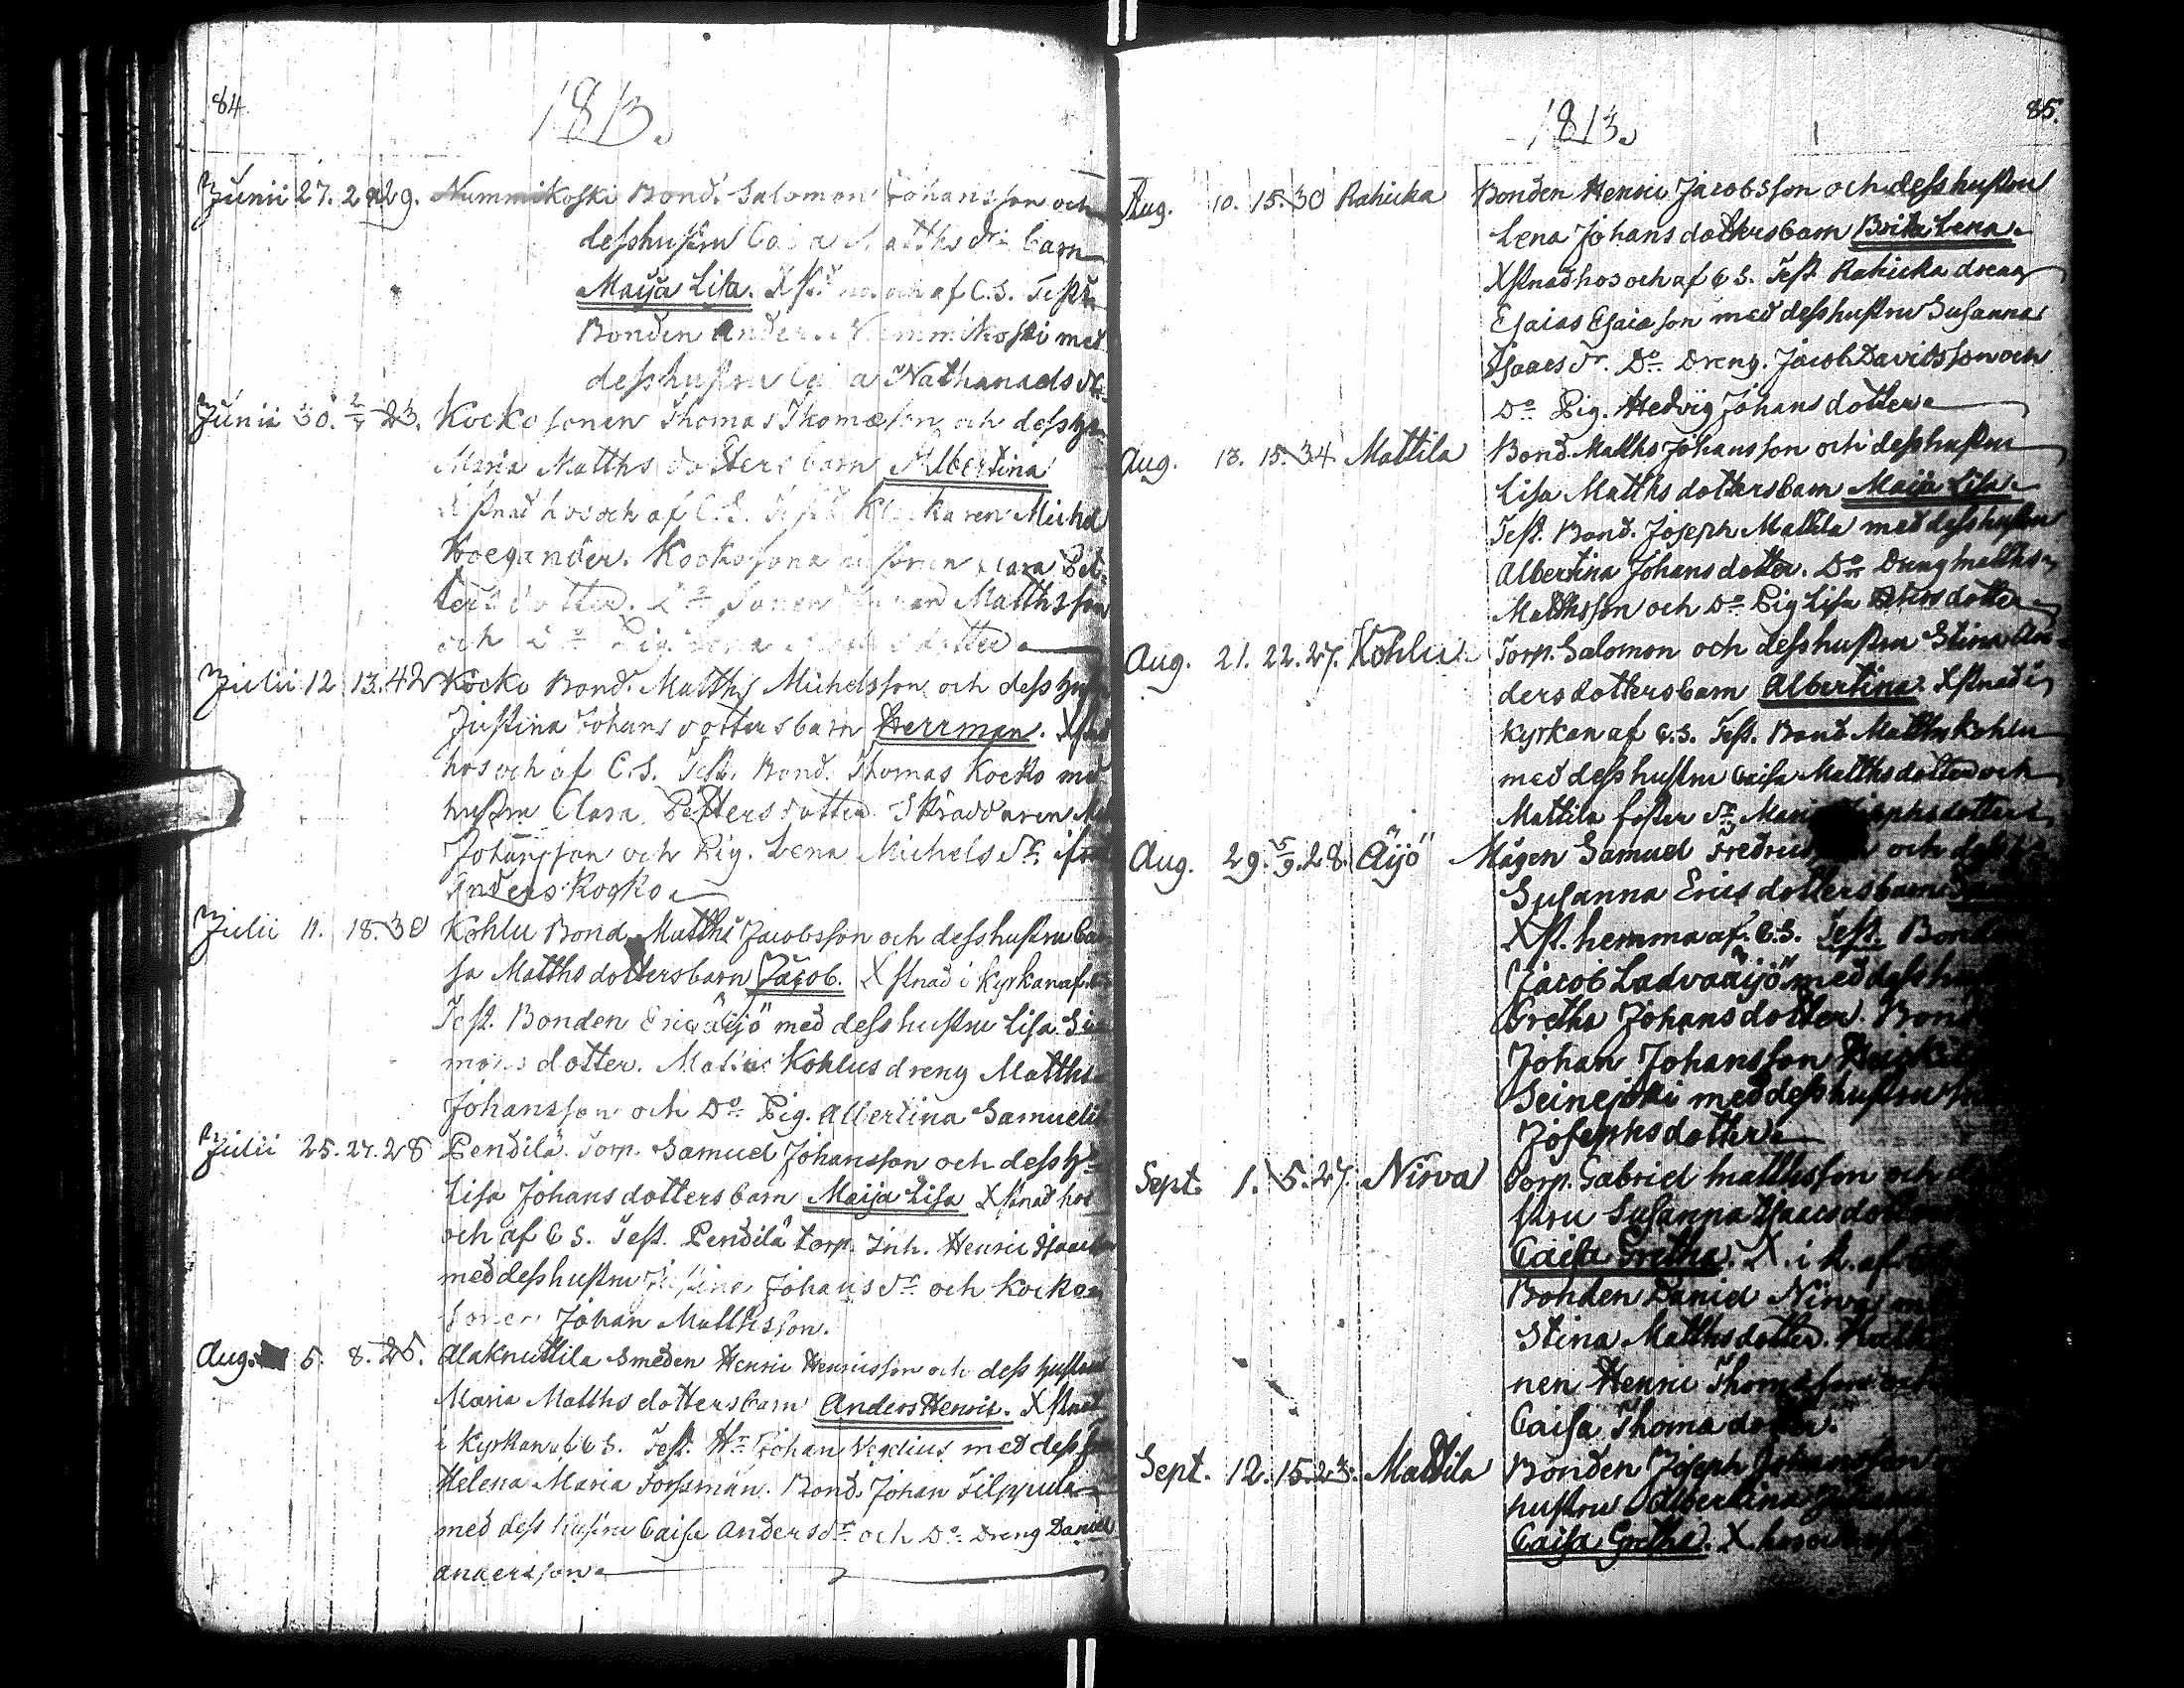 84
1813.
Junii 27. 29. 29. Nummikoski Bond. Salomon Johansson och
desshustru Matths barn
Maija Lisa. och af C.S. Test.
Bonden med
desshustru Nathanaels dr.
Junii 30. 2/7 23. Kocko sonen Thomas Thomæson och dess h.
Maria Matths dotters barn Albertina
Xstnad hos och af C.S. Klockaren Michel
Kocko sona Clara Pet-
ters dotter. Do Sonen Matthsson
och Do Pig. Lena dotter
Julii 12 13. 42 Kocko Bond. Matths Michelsson och dess hustru
Justina Johans dotters barn Herrman. Xstnad
hos och af C.S. Test. Bond. Thomas Kocko med
hustru Clara Petters dotter. Skräddaren
Johansson och Pig. Lena Michels dr. ifrån
Anders Kocko
Julii 11. 18. 30 Kohlu Bond. Matths Jacobsson och desshustru Cai-
sa Matths dottersbarn Jacob. Xstnad i Kyrkan af
Test. Bonden Eric Äijö med desshustru Lisa Si-
mons dotter. Kohlus dreng Matths
Johansson och Do Pig. Albertina Samuels
Julii 25. 27. 28 Pendilä Torp. Samuel Johansson och dess h.
Lisa Johans dottersbarn Maija Lisa Xstnad hos
och af C S. Test. Pendilä Torp. Inh. Henric Isaacsson
med desshustru Justina Johans dr. och Kocko
sonen Johan Matthsson.
Aug. 5. 8. 25. Alaknuttila Smeden Henric Henricsson och dess hustru
Maria Matths dottersbarn Anders Henric. Xstnad
i Kyrkan af C S. Test. Hr Johan Vegelius med dess fru
Helena Maria Forssman. Bond. Johan Filppula
med dess hustru Caisa Anders dr. och Do Dreng Daniel
Andersson
85.
1813.
Aug. 10. 15. 30 Rahicka Bonden Henric Jacobsson och desshustru
Lena Johans dottersbarn Brita Lena.
Xstnad hos och af C S. Test. Rahicka dreng
Esaias Esaiæson med desshustru Susanna
Isaacs dr. Do Dreng. Jacob Davidsson och
Do Pig. Hedvig Johans dotter
Aug. 13. 15. 34 Mattila Bond. Matths Johansson och desshustru
Lisa Matths dottersbarn Maija Lisa
Test. Bond. Joseph Mattila med desshustru
Albertina Johans dotter. Do Dreng Matths
Matthsson och Do Pig Lisa Petters dotter
Aug. 21. 22. 27. Kohlu Torp. Salomon och desshustru Stina An-
dersdottersbarn Albertina. Xstnad i
Kyrkan af C.S. Test. Bond. Matths Kohlu
med desshustru Caisa Matths dotter och
Mattila foster dr. Maria Josephs dotter
Aug. 29. 5/9. 28. Äijö Mågen Samuel Fredricsson och
Susanna Erics dottersbarn
Xst. hemma af C.S. Test. Bonden
Jacob Ladvaäijö med desshustru
Gretha Johans dotter. Bond
Johan Johansson
Seinejoki med desshustru
Josephs dotter
Sept. 1. 5. 27. Nirva Torp. Gabriel Matthsson och
stru Susanna Isaacs dotters
Caisa Gretha. X. i k. af
Bonden Daniel Nirva
Stina Matths dotter.
nen Henric Thomæson
Caisa Thomæ dotter.
Sept. 12. 15. 23. Mattila Bonden Joseph Johansson
hustru Albertina Johans
Caisa Gretha. X. hos